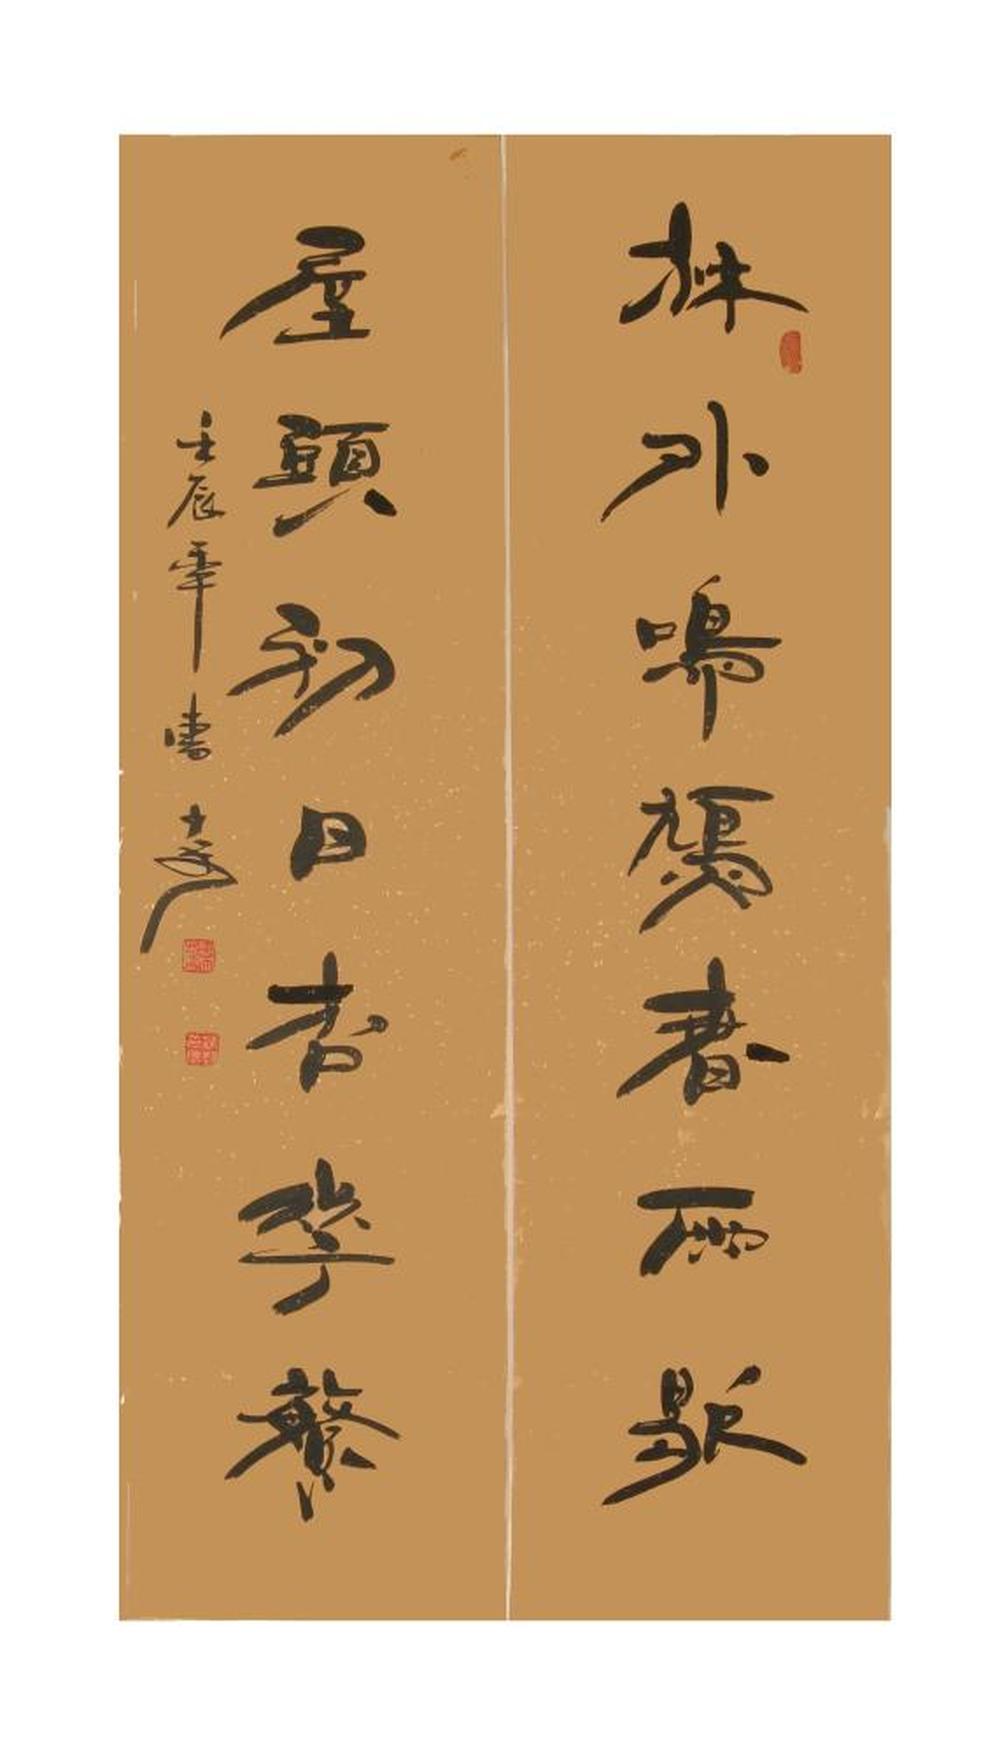 林外鳴鳩春雨歇
屋頭初日杏華繁
壬辰年書